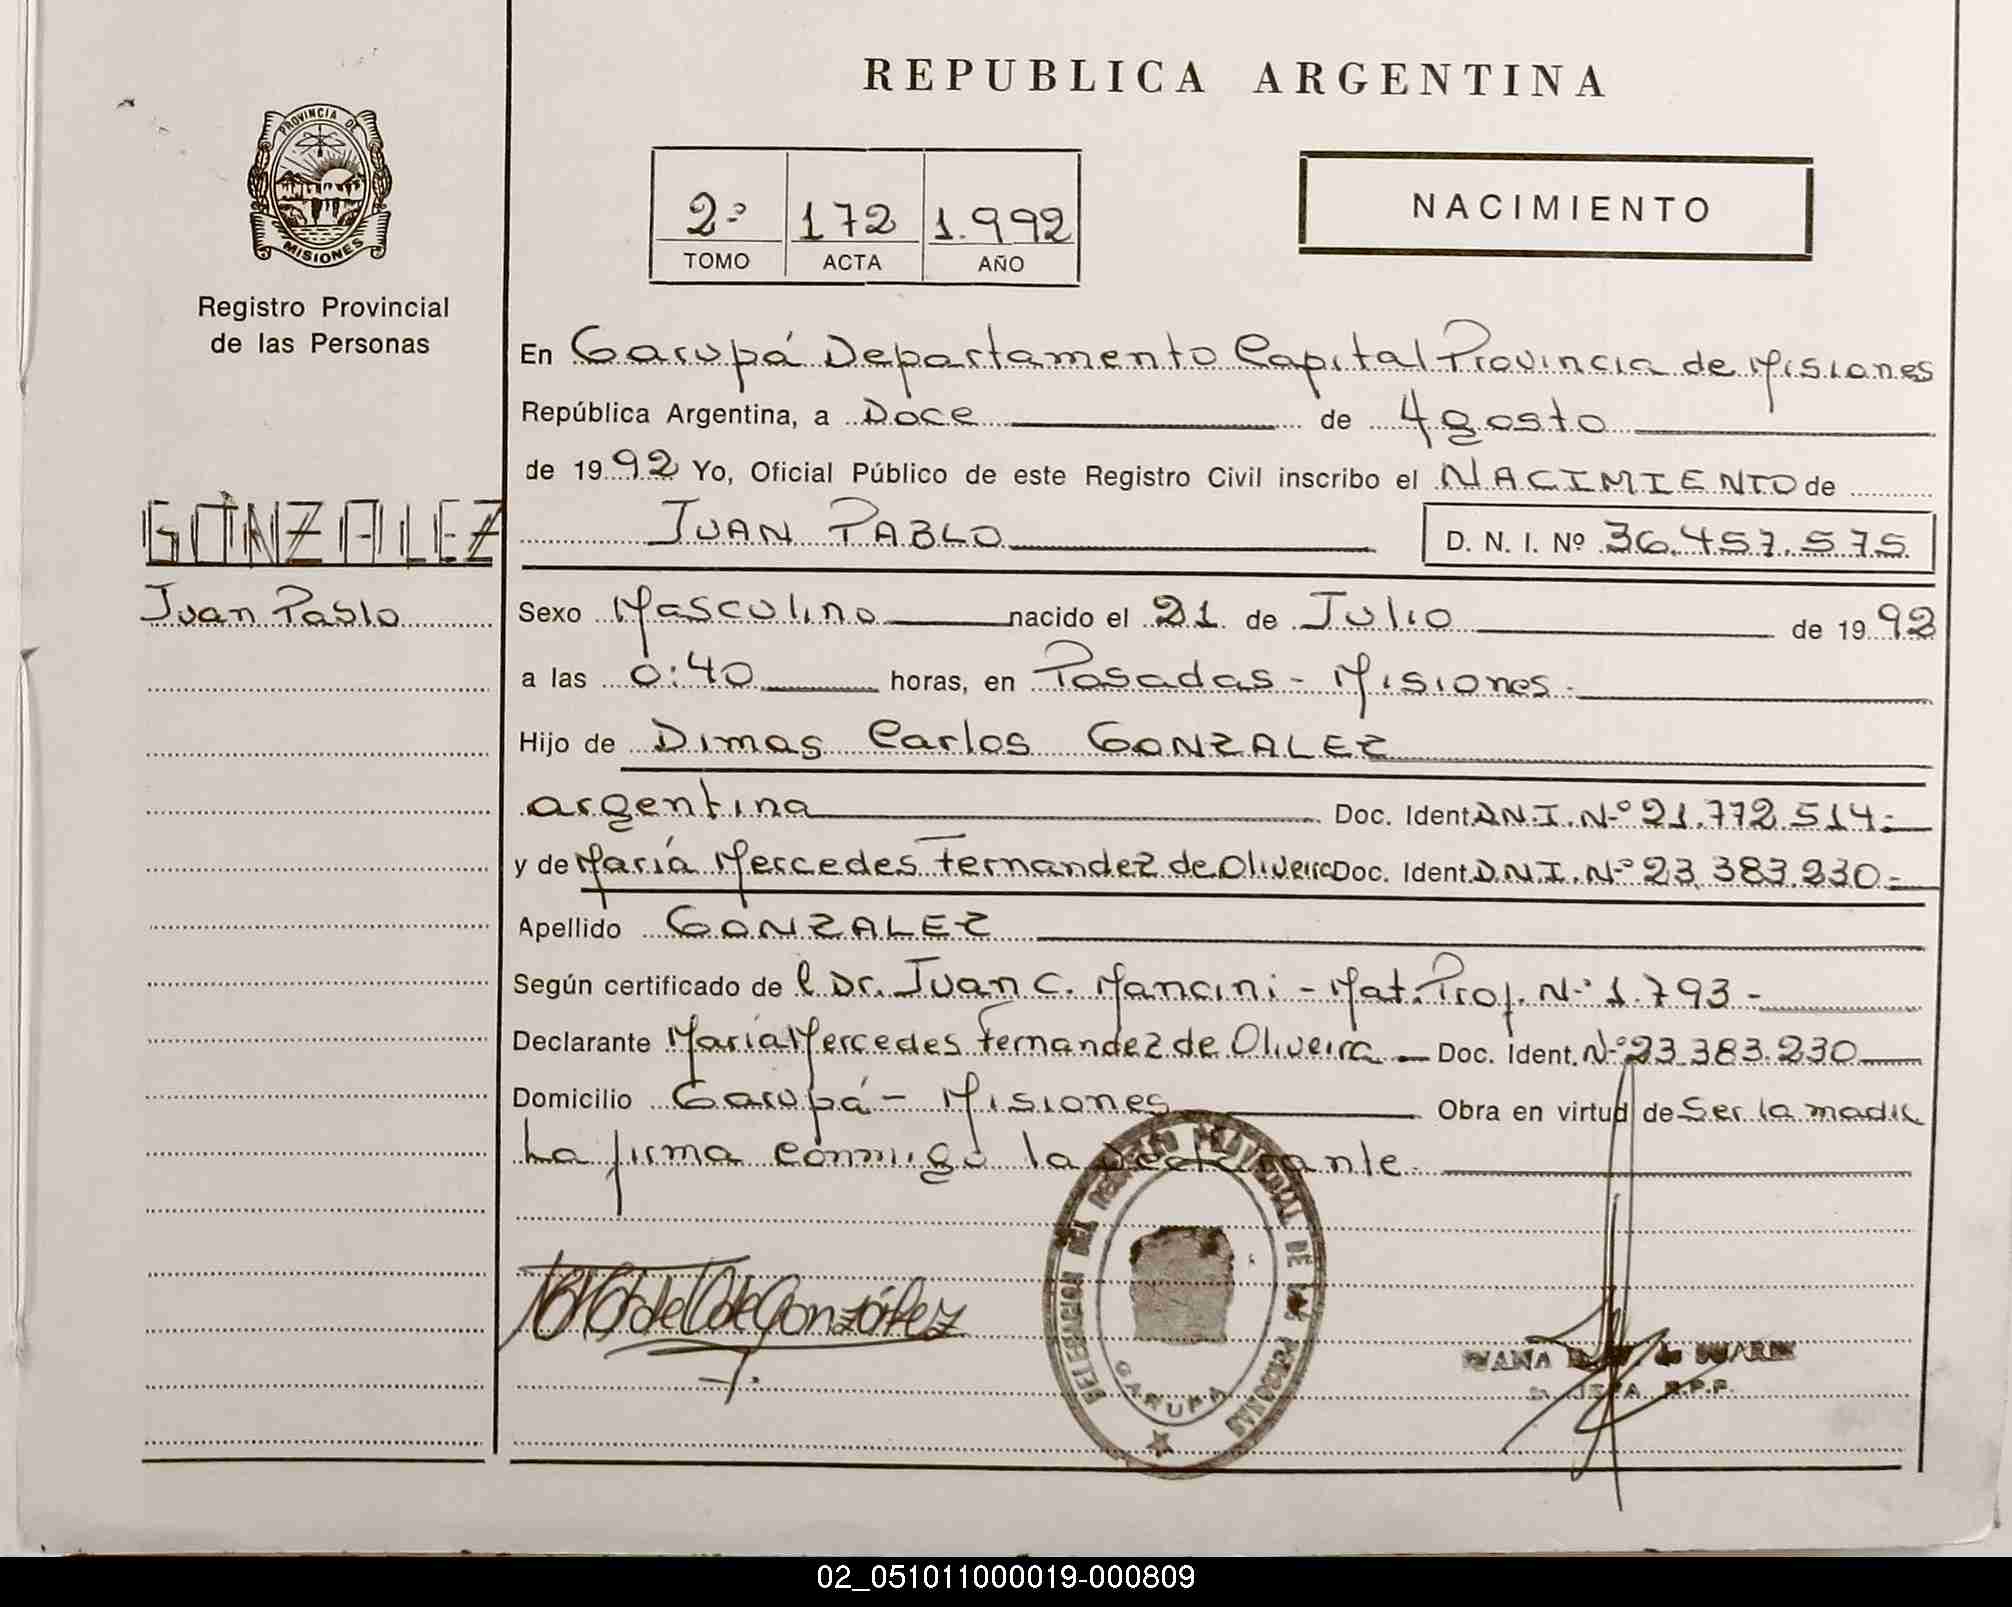 REPUBLICA ARGENTINA
PROVINCIA DE
MISIONES
Registro Provincial
de las Personas
2º 172 1.992
TOMO ACTA AÑO
NACIMIENTO
En Garupá Departamento Capital Provincia de Misiones
República Argentina, a Doce de Agosto
de 1992 Yo, Oficial Público de este Registro Civil inscribo el NACIMIENTO de
JUAN PABLO D. N. I. Nº 36.457.575
GONZALEZ
Juan Pablo
Sexo Masculino nacido el 21 de Julio de 1992
a las 0:40 horas, en Posadas - Misiones.
Hijo de Dimas Carlos GONZALEZ
argentina Doc. Ident. D.N.I. Nº 21.772.514-
y de María Mercedes Fernandez de Oliveira Doc. Ident. D.N.I. Nº 23.383.230-
Apellido GONZALEZ
Según certificado de l Dr. Juan C. Mancini - Mat. Prof. Nº 1.793-
Declarante María Mercedes Fernandez de Oliveira Doc. Ident. Nº 23.383.230
Domicilio Garupá - Misiones Obra en virtud de Ser la madre
La firma conmigo la Declarante.
DELEGACION DEL REGISTRO PROVINCIAL DE LAS PERSONAS
GARUPA
de González
SUAREZ
JEFA R.P.P.
02_051011000019-000809